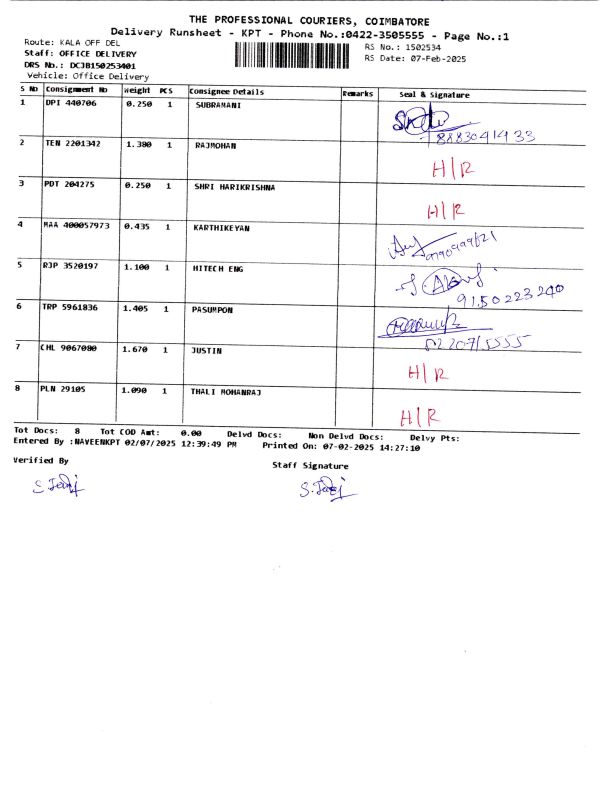 THE PROFESSIONAL COURIERS, COIMBATORE
Delivery Runsheet - KPT - Phone No.:0422-3505555 - Page No.:1
Route: KALA OFF DEL
RS No.: 1502534
Staff: OFFICE DELIVERY
RS Date: 07-Feb-2025
DRS No.: DCJB150253401
Vehicle: Office Delivery
S No Consignment No Weight PCS Consignee Details Remarks Seal & Signature
1 DPI 440706 0.250 1 SUBRAMANI
8883041433
2 TEN 2201342 1.380 1 RAJMOHAN
H/R
3 PDT 204275 0.250 1 SHRI HARIKRISHNA
H/R
4 MAA 400057973 0.435 1 KARTHIKEYAN
5 RJP 3520197 1.100 1 HITECH ENG
9150223240
6 TRP 5961836 1.405 1 PASUMPON
7 CHL 9067080 1.670 1 JUSTIN
H/R
8 PLN 29105 1.090 1 THALI MOHANRAJ
H/R
Tot Docs: 8 Tot COD Amt: 0.00 Delvd Docs: Non Delvd Docs: Delvy Pts:
Entered By :NAVEENKPT 02/07/2025 12:39:49 PM Printed On: 07-02-2025 14:27:10
Verified By
Staff Signature